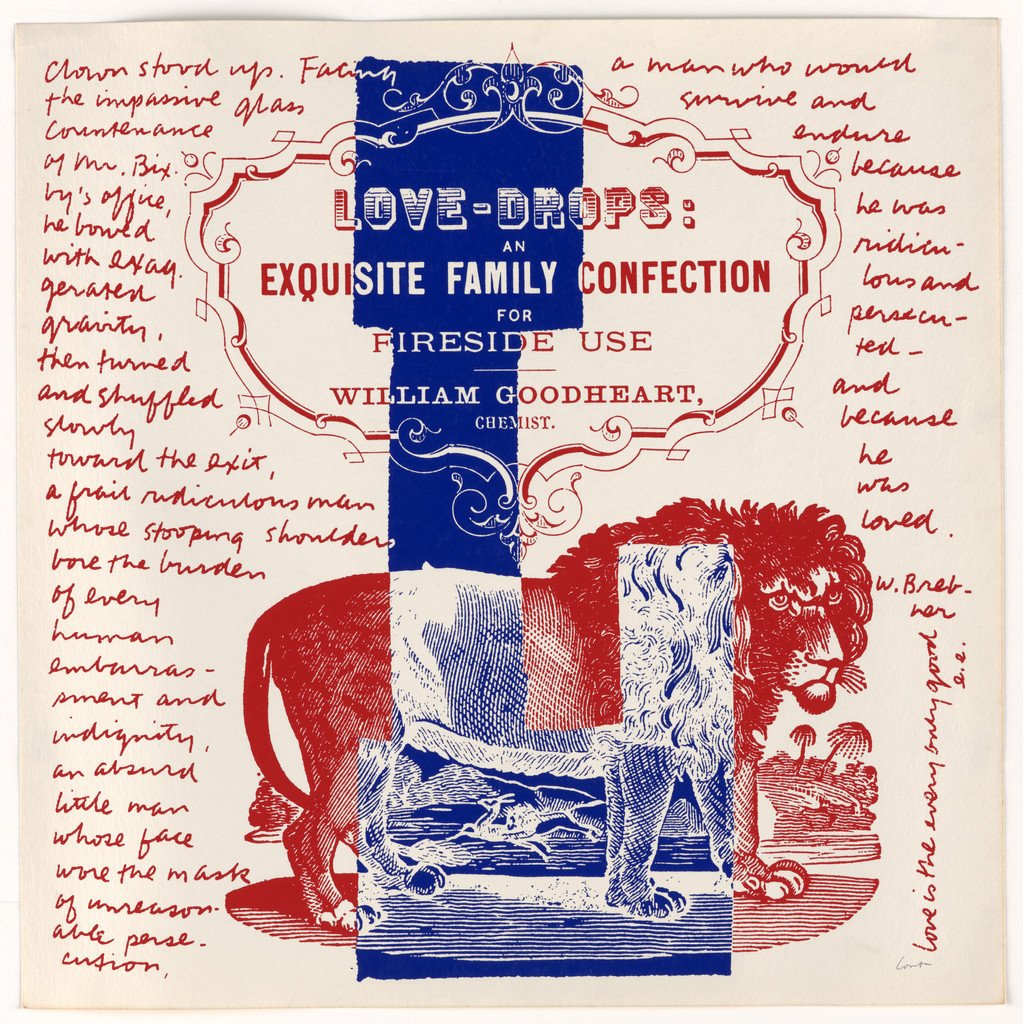 Clown stood up. Facing
the impassive glass
countenance
of Mr. Bix-
by's office,
he bowed
with exag-
gerated
gravity,
then turned
and shuffled
slowly
toward the exit,
a frail ridiculous man
whose stooping shoulders
bore the burden
of every
human
embarras-
sment and
indignity,
an absurd
little man
whose face
wore the mask
of unreason-
able perse-
cution,
a man who would
survive and
endure
because
he was
ridicu-
lous and
persecu-
ted –
and
because
he
was
loved.
W. Breb-
ner
LOVE-DROPS:
AN
EXQUISITE FAMILY CONFECTION
FOR
FIRESIDE USE
WILLIAM GOODHEART,
CHEMIST.
love is the every only good
e.e.
Corita